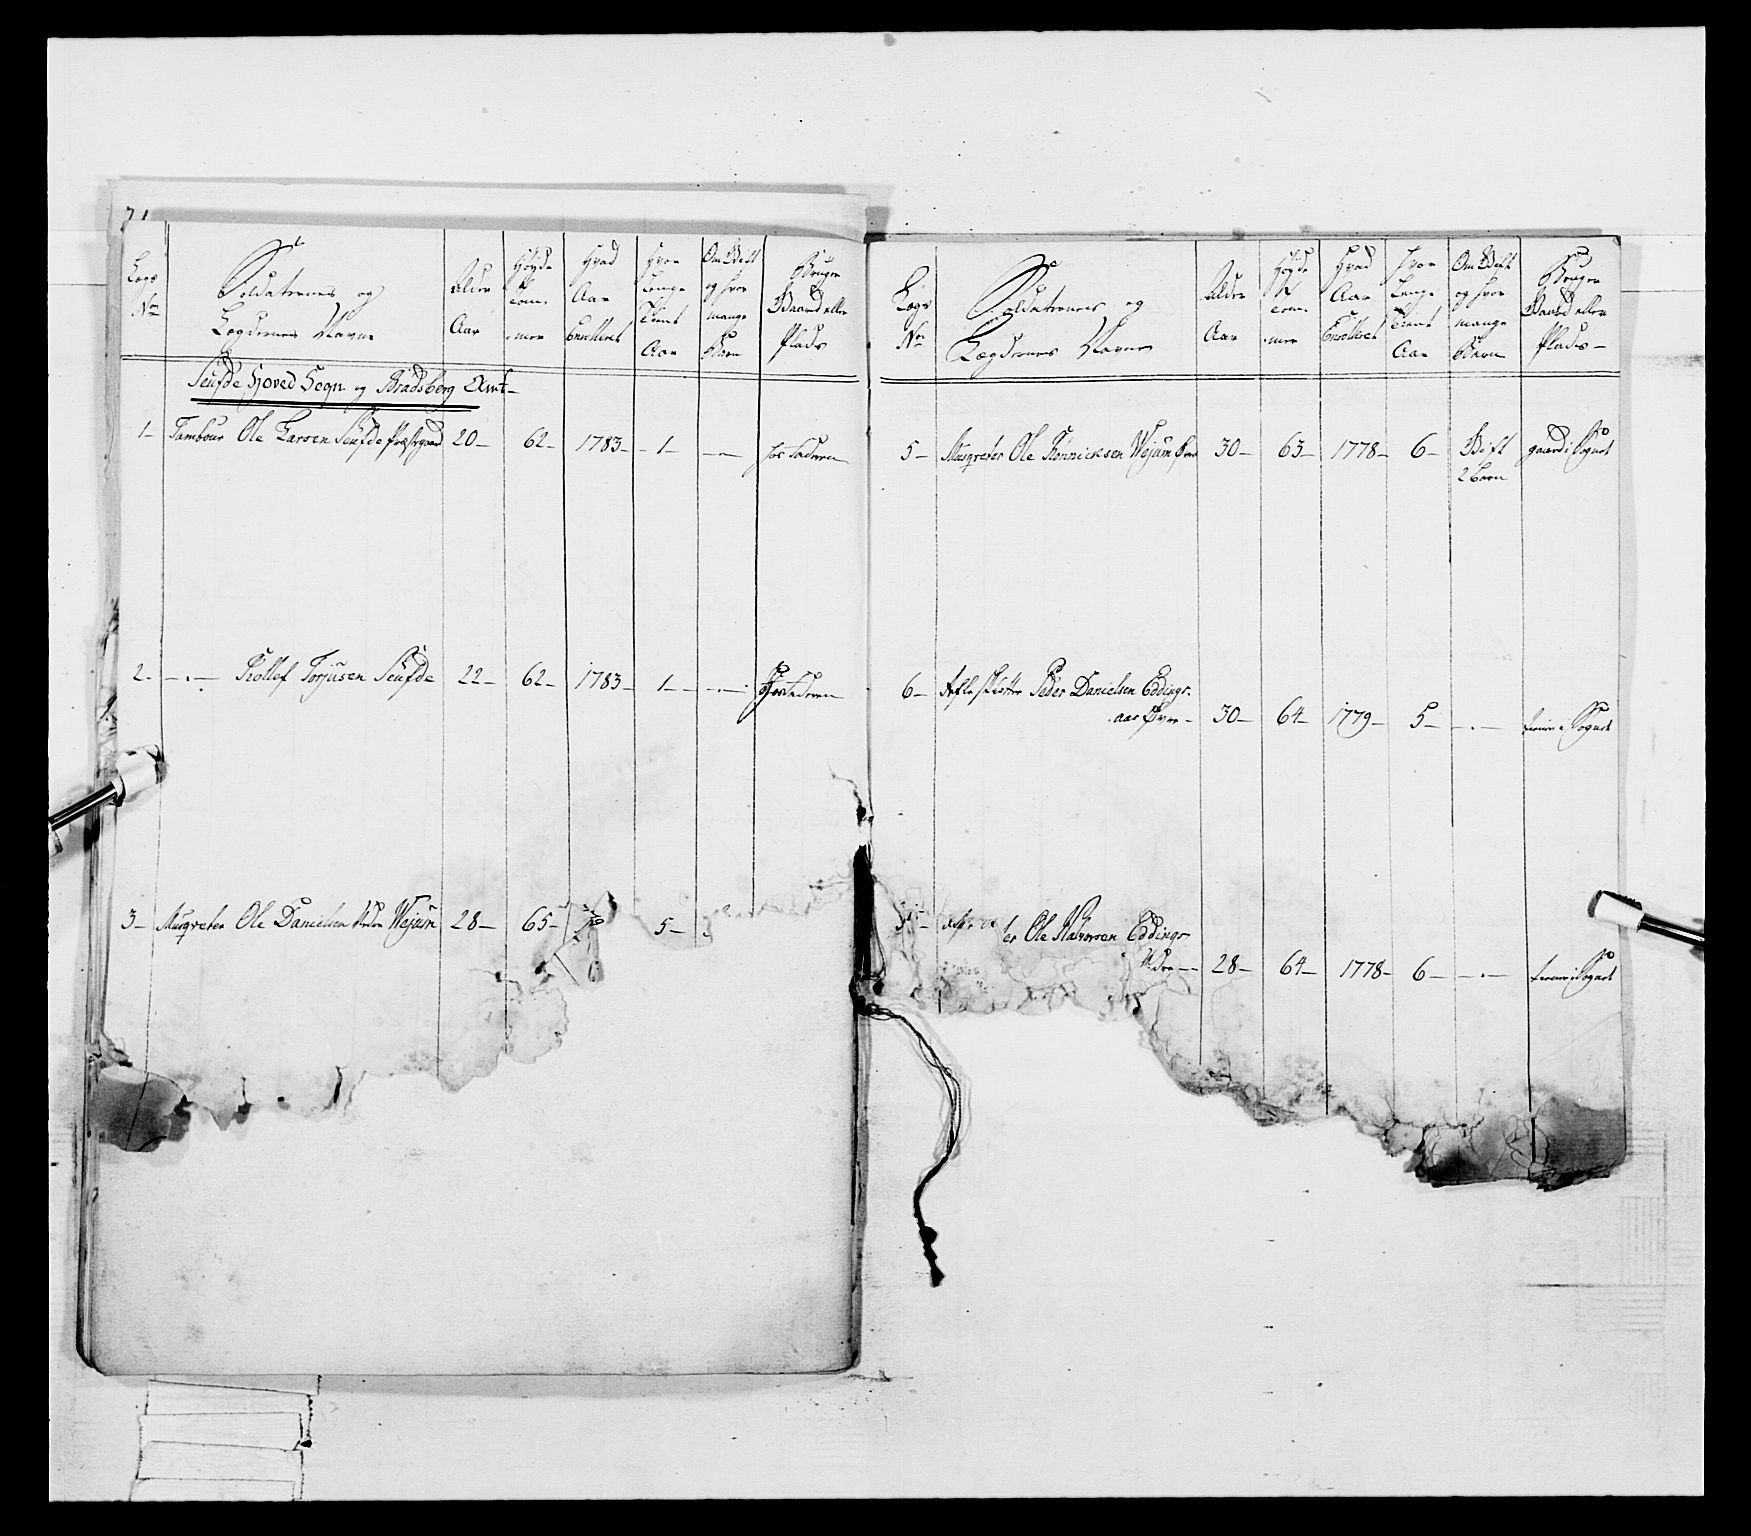 Legs No
Soldaternes og Lægdernes Navne
Alder Aar
Høyde Tom- mer
Hvad Aar Enrolleret
Hvor Lenge Tient Aar
Om Gift og hvor mange Børn
Bruger Gaard eller Plads
Seufde Hoved Sogn og Bradsberg Amt
1- Tambour Ole Larsen Seufde Præstgaard 20- 62- 1783- 1- hos Faderen
2- Rollef Torjusen Seufde 22- 62- 1783- 1- hos Faderen
3- Musqveter Ole Danielsen Nedre Wejum 28- 65- 5-
Legs No
Soldaternes og Lægdernes Navne
Alder Aar
Høyde Tom- mer
Hvad Aar Enrolleret
Hvor Lenge Tient Aar
Om Gift og hvor mange Børn
Bruger Gaard eller Plads-
5- Musqveter Ole Kønnicksen Wejum Øvre 30- 63- 1778- 6- Gift gaard i Sognet
2 Børn
6- Peder Danielsen Eddings-
aas Øvre- 30- 64- 1779- 5- tiener i Sognet
Ole Halvorsen Eddings-
Nedre- 28- 64- 1778- 6- tiener i Sognet